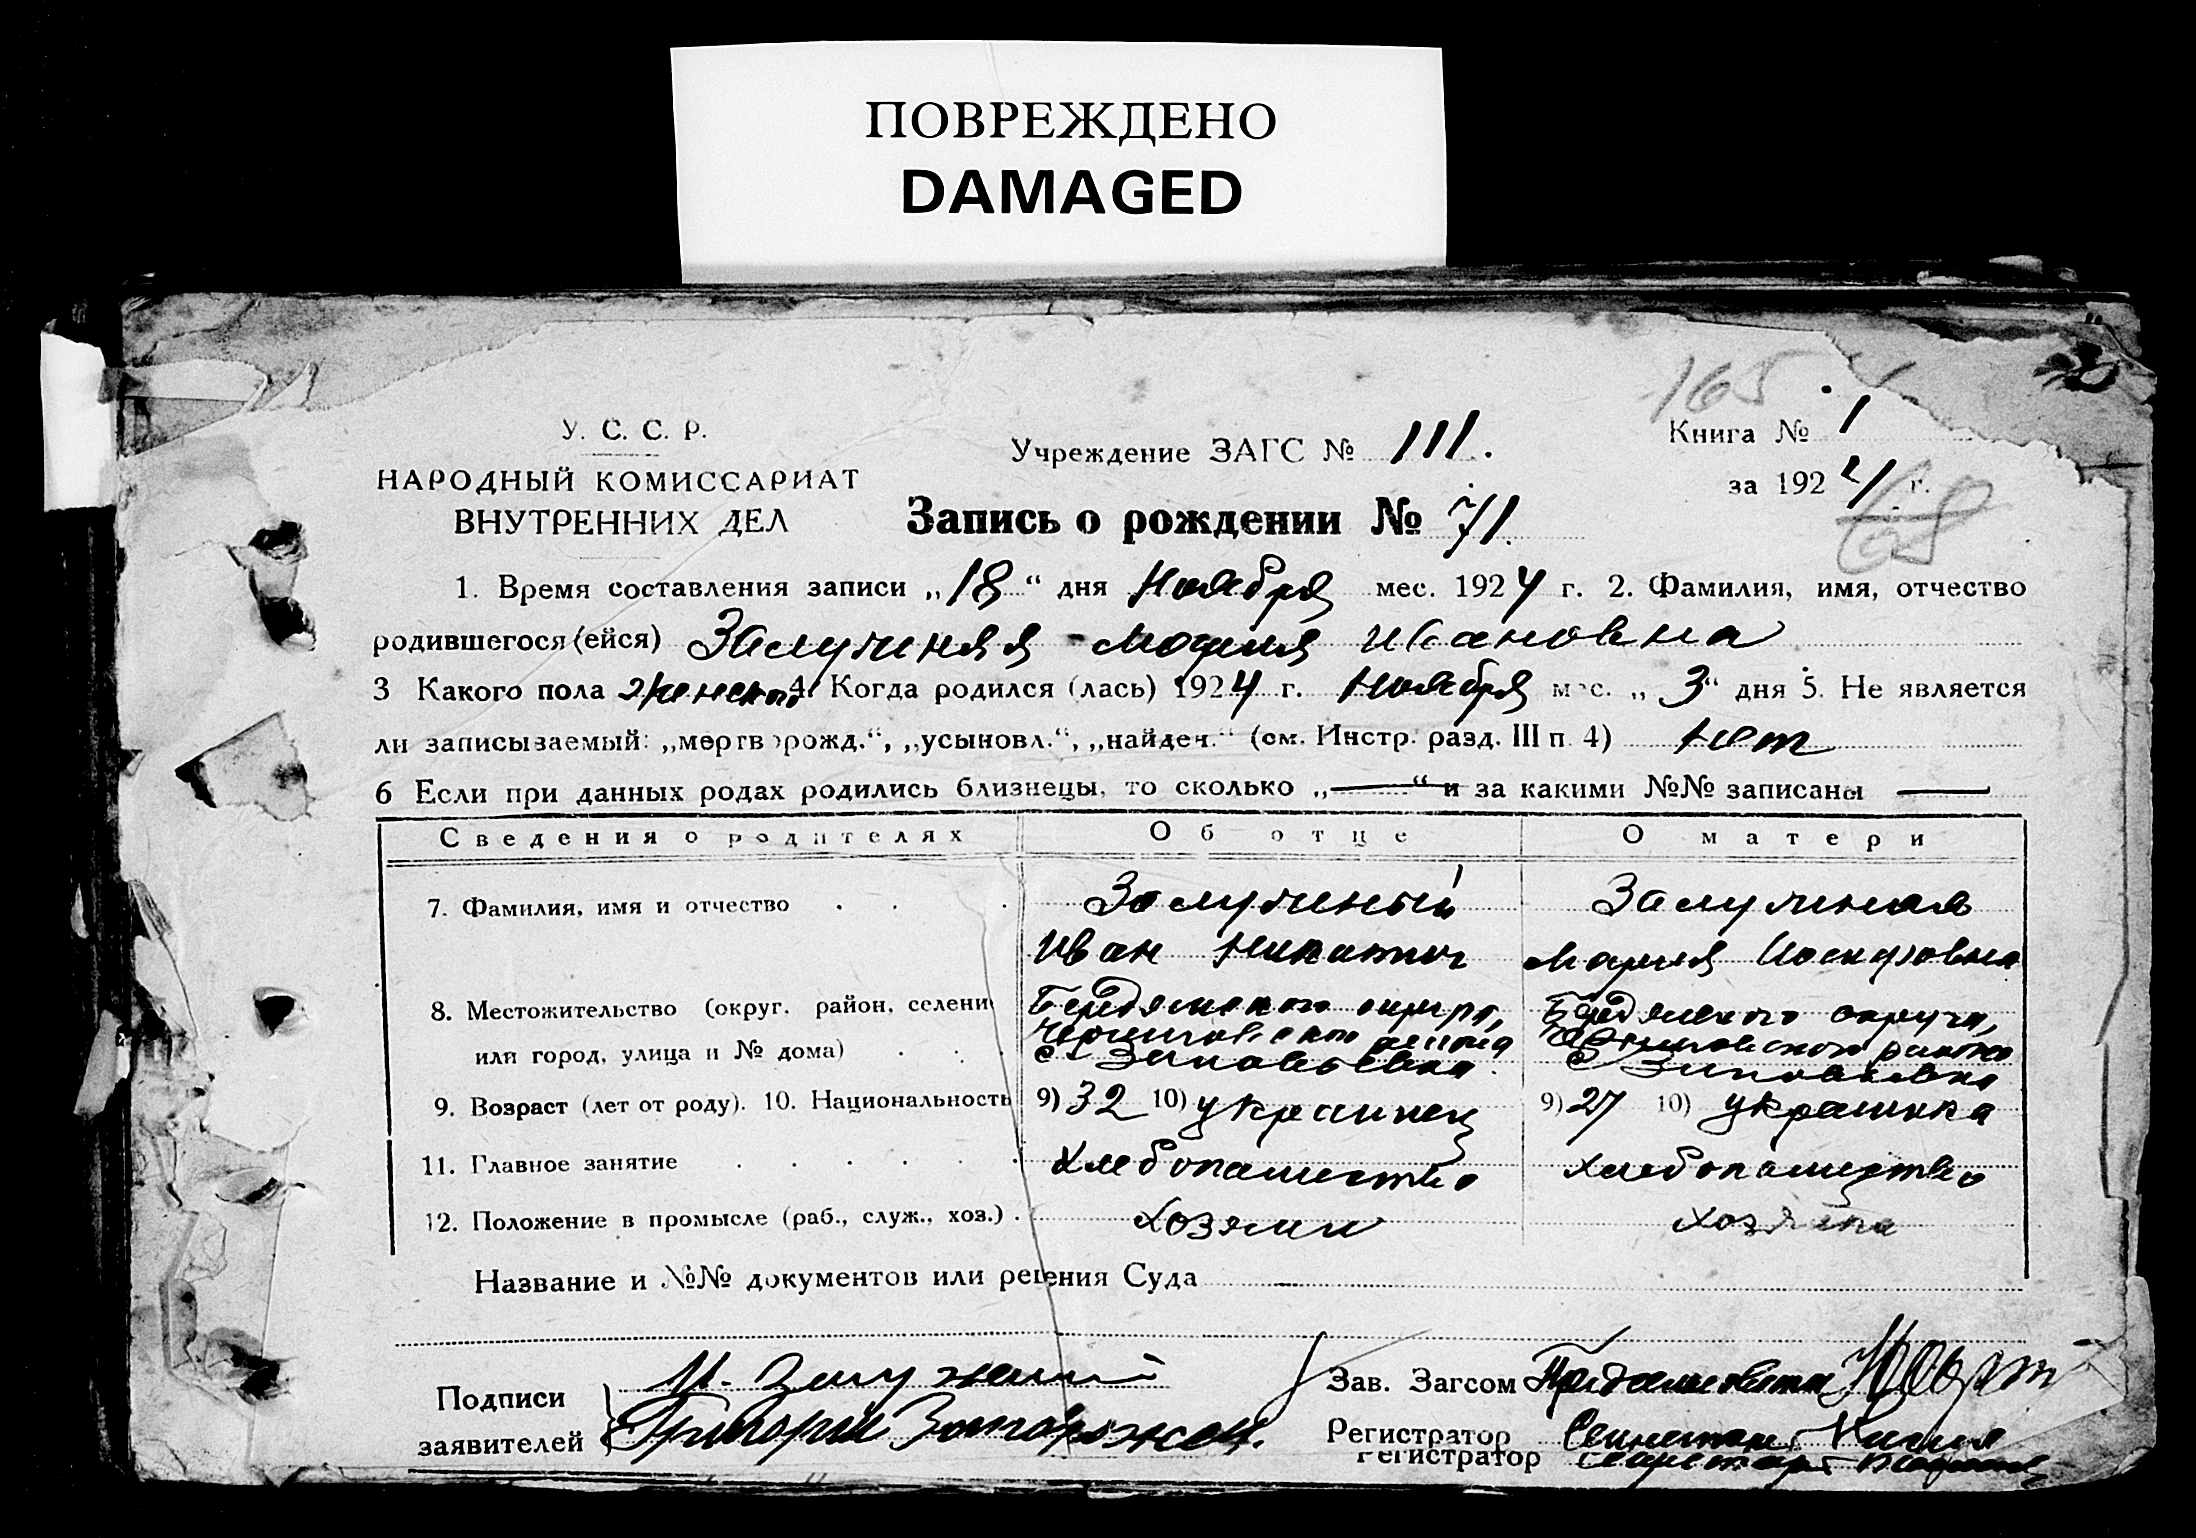 ПОВРЕЖДЕНО
DAMAGED
165
У. С. С. Р.
НАРОДНЫЙ КОМИССАРИАТ
ВНУТРЕННИХ ДЕЛ
Учреждение ЗАГС № 111.
Книга № 1
за 1924 г.
68
Запись о рождении № 71.
1. Время составления записи „18“ дня Ноября мес. 1924 г. 2. Фамилия, имя, отчество
родившегося (ейся) Залужная Мария Ивановна
3 Какого пола женского 4 Когда родился (лась) 1924 г. Ноября мес. „3“ дня 5. Не является
ли записываемый: „мертворожд.“, „усыновл.“, „найден.“ (см. Инстр. разд. III п. 4) Нет
6 Если при данных родах родились близнецы, то сколько „—“ и за какими №№ записаны —
Сведения о родителях Об отце О матери
7. Фамилия, имя и отчество Залужный Залужная
Иван Никитич Мария Иосифовна
8. Местожительство (округ, район, селение Бердянского округа, Бердянского округа,
Черниговского района Черниговского района
или город, улица и № дома) с Зиновьевка с Зиновьевка
9. Возраст (лет от роду). 10. Национальность 9) 32 10) украинец 9) 27 10) украинка
11. Главное занятие Хлебопашество хлебопашество
12. Положение в промысле (раб., служ., хоз.) Хозяин хозяйка
Название и №№ документов или решения Суда —
Подписи И. Залужний
заявителей Григорий Запорожец.
Зав. Загсом Предсельсовета
Регистратор Секретарь
Регистратор Секретарь